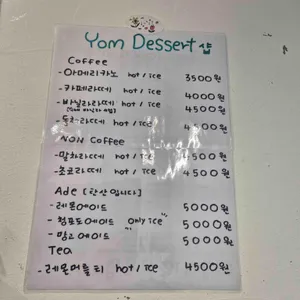 Yom Dessert 샵
Coffee
- 아메리카노 hot / ice 3500원
- 카페라떼 hot / ice 4000원
- 바닐라라떼 hot / ice 4500원
- 돌체라떼 hot / ice 4500원
NON Coffee
- 말차라떼 hot / ice 4500원
- 초코라떼 hot / ice 4500원
Ade [탄산입니다]
- 레몬에이드 5000원
- 청포도에이드 "only ice" 5000원
- 망고에이드 5000원
Tea
- 레몬머틀티 hot / ice 4500원